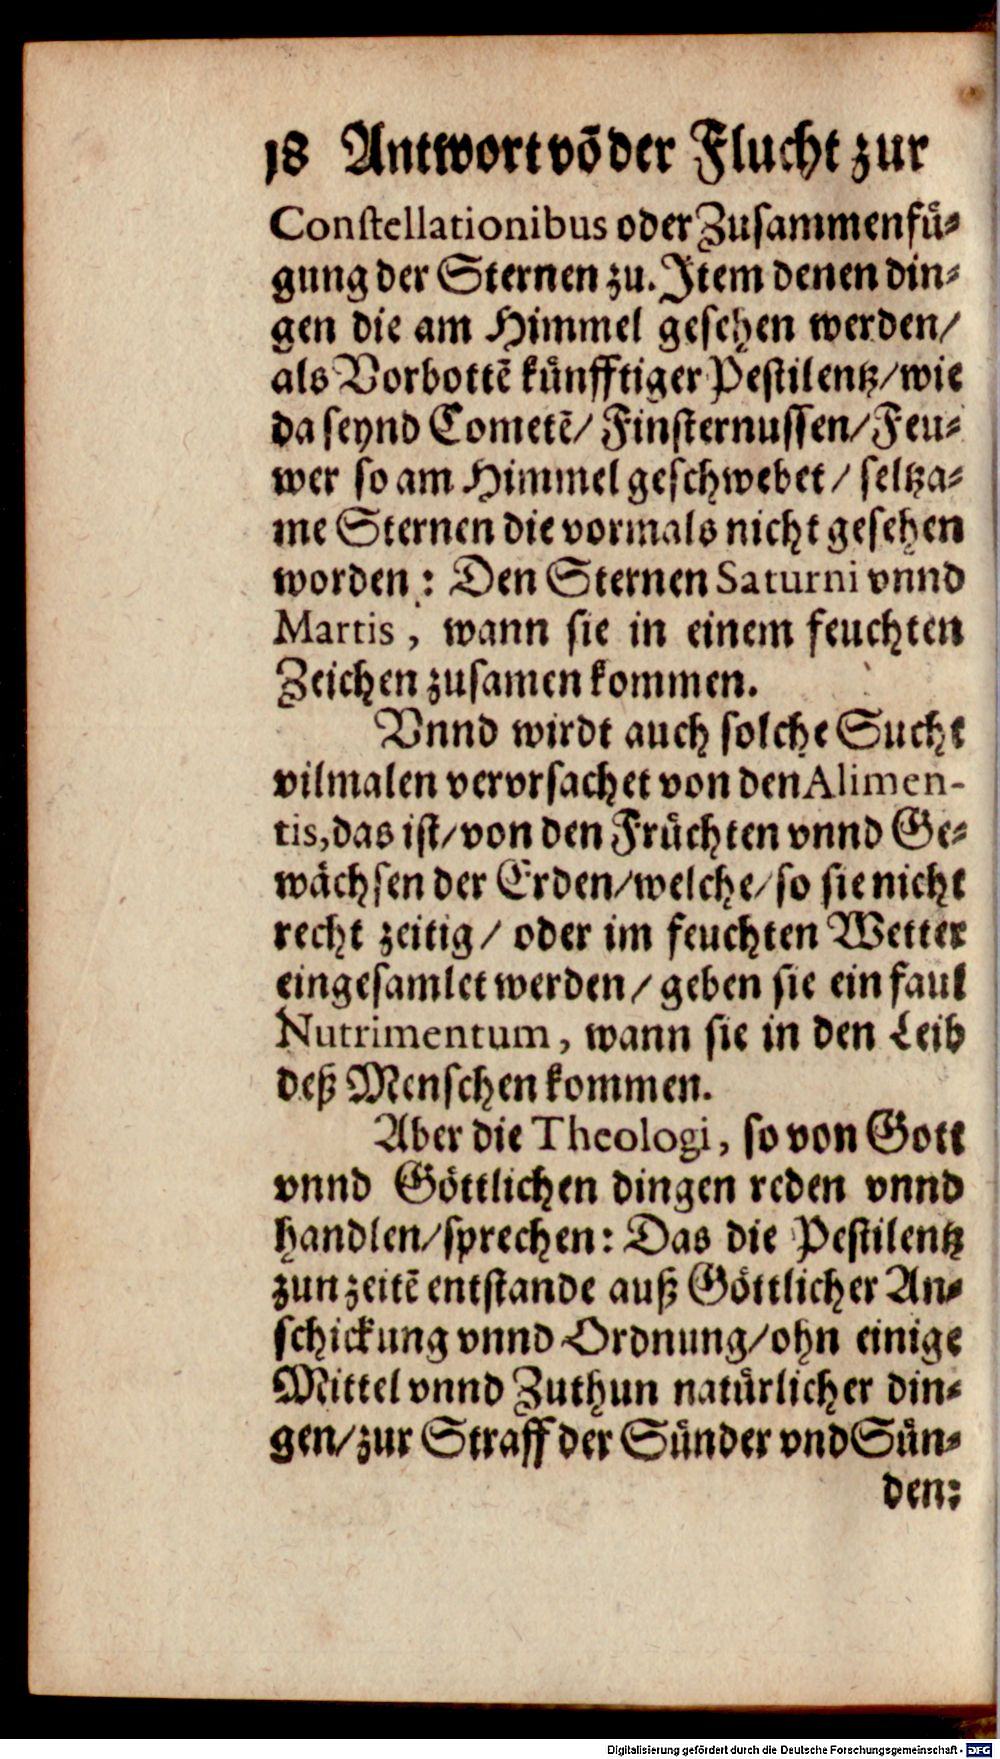 18 Antwort võ der Flucht zur
Constellationibus oder Zusammenfuͤ-
gung der Sternen zu. Item denen din-
gen die am Himmel gesehen werden/
als Vorbottẽ kuͤnfftiger Pestilentz/wie
da seynd Cometẽ/ Finsternussen/Feu-
wer so am Himmel geschwebet/ seltza-
me Sternen die vormals nicht gesehen
worden: Den Sternen Saturni vnnd
Martis, wann sie in einem feuchten
Zeichen zusamen kommen.
Vnnd wirdt auch solche Sucht
vilmalen verursachet von den Alimen-
tis, das ist/von den Fruͤchten vnnd Ge-
waͤchsen der Erden/welche/so sie nicht
recht zeitig/ oder im feuchten Wetter
eingesamlet werden/ geben sie ein faul
Nutrimentum, wann sie in den Leib
deß Menschen kommen.
Aber die Theologi, so von Gott
vnnd Goͤttlichen dingen reden vnnd
handlen/sprechen: Das die Pestilentz
zun zeitẽ entstande auß Goͤttlicher An-
schickung vnnd Ordnung/ohn einige
Mittel vnnd Zuthun natuͤrlicher din-
gen/zur Straff der Suͤnder vnd Suͤn-
den:
Digitalisierung gefördert durch die Deutsche Forschungsgemeinschaft - DFG